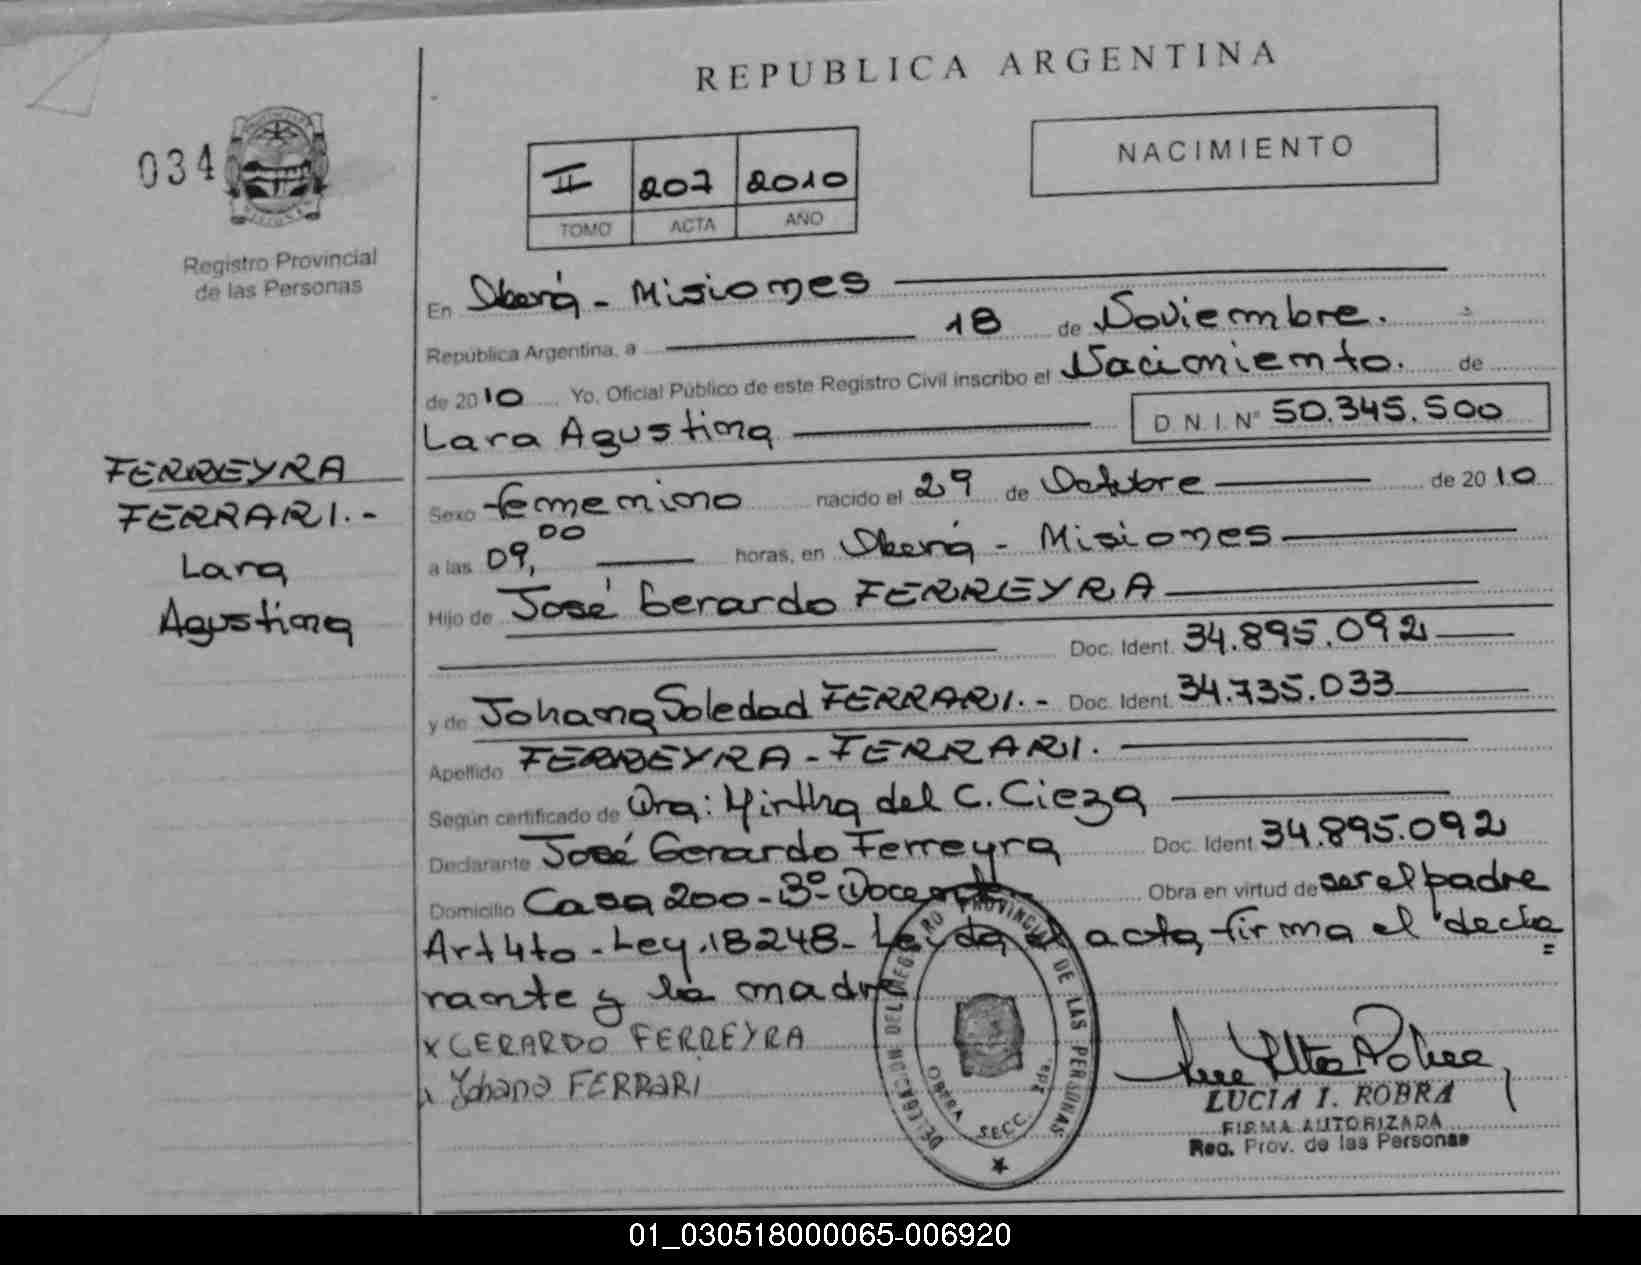 REPUBLICA ARGENTINA
034
Registro Provincial
de las Personas
II 207 2010
TOMO ACTA AÑO
NACIMIENTO
En Oberá - Misiones
República Argentina, a 18 de Noviembre.
de 2010 Yo, Oficial Público de este Registro Civil inscribo el Nacimiento. de
Lara Agustina D.N.I. N° 50.345.500
FERREYRA
FERRARI.-
Lara
Agustina
Sexo femenino nacido el 29 de Octubre de 2010
a las 09,00 horas, en Oberá - Misiones
Hijo de José Gerardo FERREYRA
Doc. Ident. 34.895.092
y de Johana Soledad FERRARI.- Doc. Ident. 34.735.033
Apellido FERREYRA - FERRARI.
Según certificado de Dra: Mirtha del C. Cieza
Declarante José Gerardo Ferreyra Doc. Ident. 34.895.092
Domicilio Casa 200 - 3° Docente Obra en virtud de ser el padre
Art 4to - Ley. 18248 - Leida el acta, firma el decla
rante y la madre
x GERARDO FERREYRA
x Johana FERRARI
DELEGACION DEL REGISTRO PROVINCIAL DE LAS PERSONAS
OBERA SECC. 2da.
LUCIA I. ROBRA
FIRMA AUTORIZADA
Reg. Prov. de las Personas
01_030518000065-006920